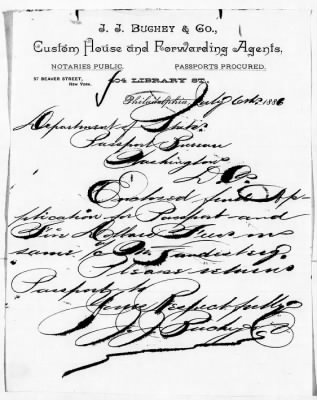 J. J. BUGHEY & CO.,
Custom House and Forwarding Agents,
NOTARIES PUBLIC. PASSPORTS PROCURED.
57 BEAVER STREET,
NEW YORK.
404 LIBRARY ST.,
Philadelphia, July 6th 1886
Department of State
Passport Bureau
Washington
D. C.
Enclosed find Ap-
plication for Passport and
Five Dollars Fees on
same
Please return
Passport to
Yours Respectfully
J. J. Bughey & Co